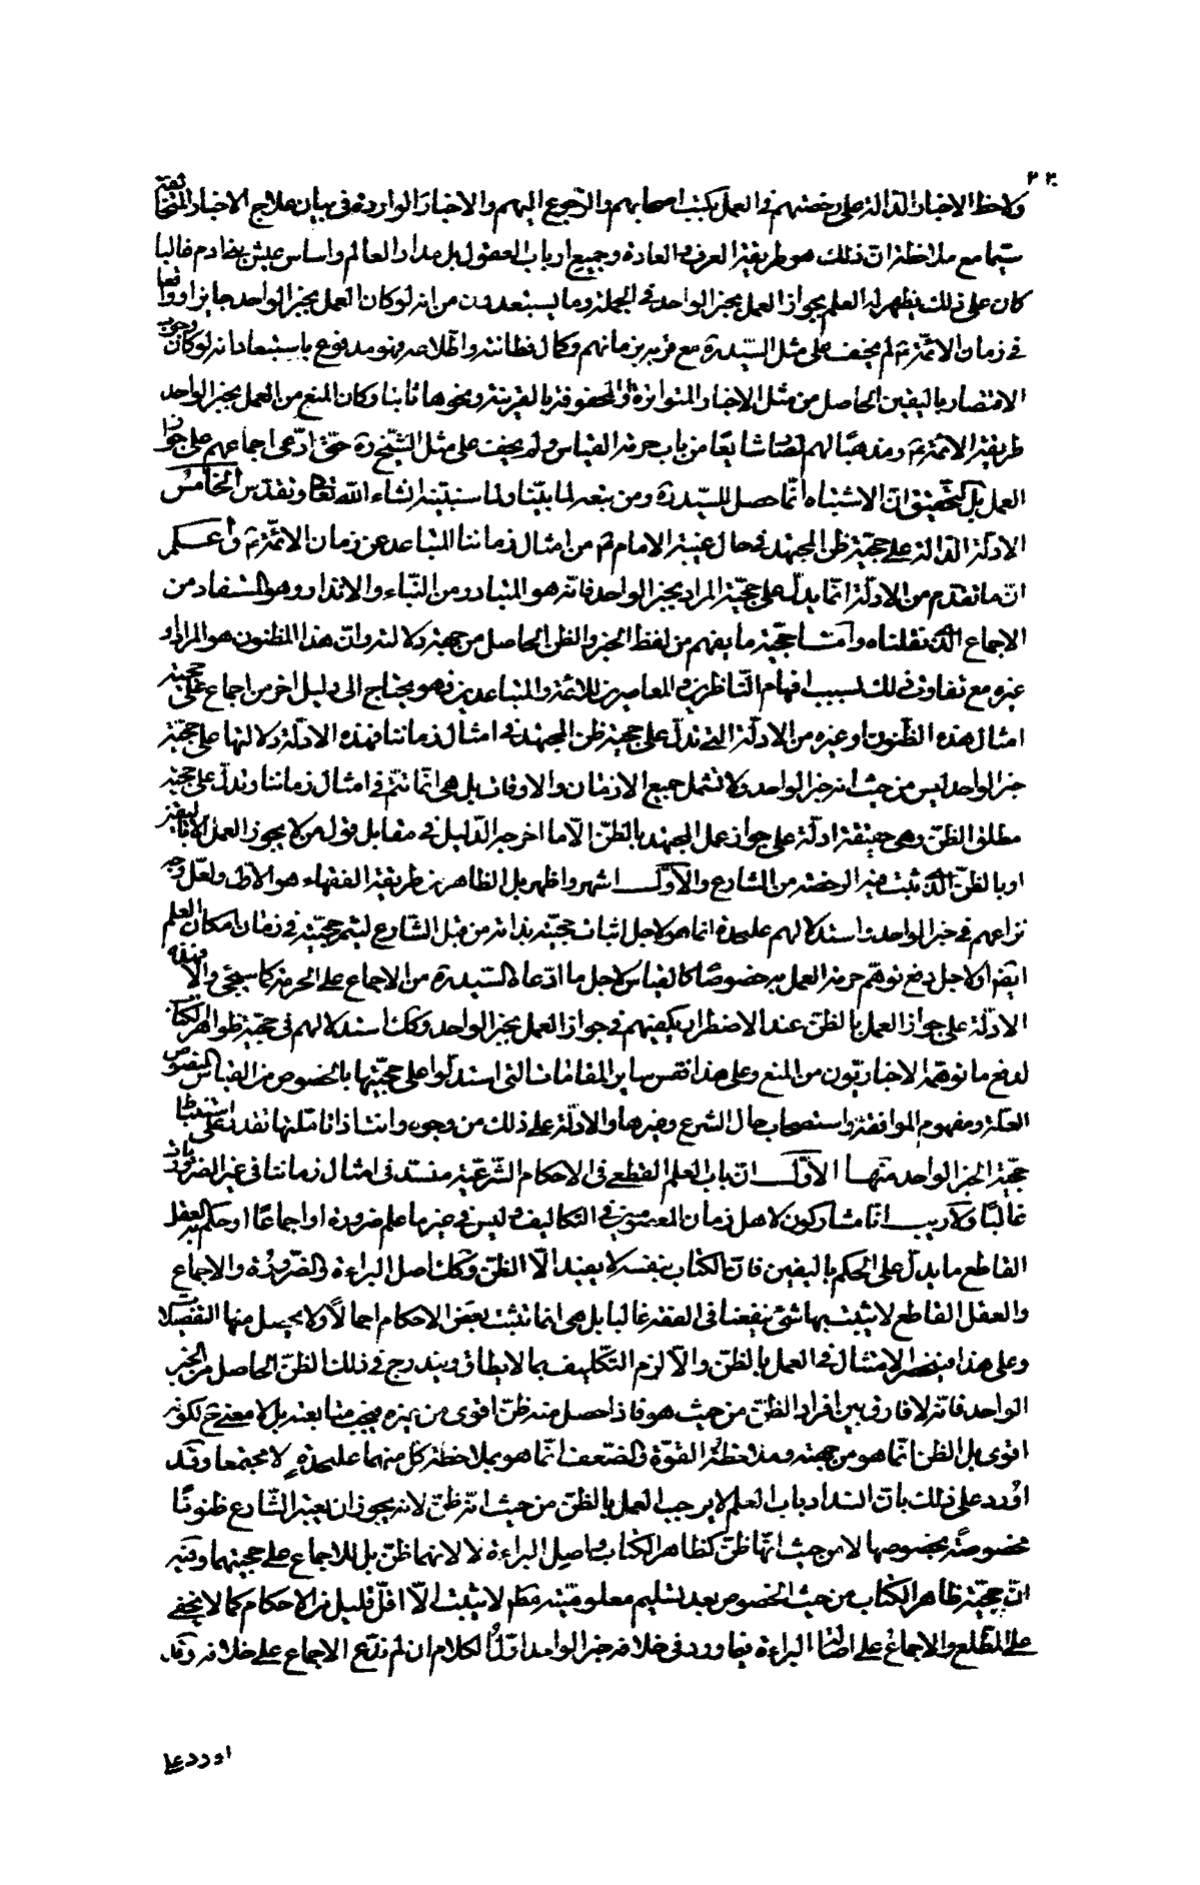 ولاحظ الاخبار الدالة على رخصتهم فى العمل بكتب اصحابهم والرجوع اليهم والاخبار الواردة فى بيان علاج الاخبار المتخالفة
سيّما مع ملاحظة ان ذلك هو طريقة العرف والعادة وجميع ارباب العقول بل مدار العالم واساس عيش بنى ادم غالبا
كان على ذلك يظهر له العلم بجواز العمل بخبر الواحد فى الجملة وما يستبعدون من انه لو كان العمل بخبر الواحد جايزا وواقعا
فى زمان الائمّة ع لم يخف على مثل السيّد ره مع قربه بزمانهم وكمال فطانته واطلاعه فهو مدفوع باستبعاد انه لو كان وجوب
الاقتصار باليقين الحاصل من مثل الاخبار المتواترة او المحفوفة بالقرينة ونحوها ثابتا وكان المنع من العمل بخبر الواحد
طريقة الائمّة ع ومذهبا لهم لصار شايعا من باب حرمة القياس ولم يخف على مثل الشيخ ره حتى ادّعى اجماعهم على جواز
العمل بل التحقيق ان الاشتباه انّما حصل للسيّد ره ومن تبعه لما بيّنا ولما سنبيّنه انشاء الله تعالى وتقدّس الخامس
الادلّة الدالة على حجيّة ظن المجتهد فى حال غيبة الامام ع من امثال زماننا المتباعد عن زمان الائمّة ع واعلم
ان ما تقدم من الادلّة انّما يدلّ على حجيّة المراد بخبر الواحد فانه هو المتبادر من النّباء والانذار وهو المستفاد من
الاجماع الذى نقلناه وامّا حجيّة ما يفهم من لفظ الخبر والظن الحاصل من جهة دلالته وان هذا المظنون هو المراد او
غيره مع تفاوت ذلك بسبب افهام النّاظرين والمعاصرين للائمة والمتباعدين فهو يحتاج الى دليل اخر من اجماع على حجيّة
امثال هذه الظنون او غيره من الادلّة التى تدلّ على حجيّة ظن المجتهد فى امثال زماننا فهذه الادلّة دلالتها على حجيّة
خبر الواحد ليس من حيث انه خبر الواحد ولا تشمل جميع الازمان والاوقات بل هى انّما تتمّ فى امثال زماننا وتدلّ على حجيّة
مطلق الظنّ وهى حقيقة ادلّة على جواز عمل المجتهد بالظنّ الّا ما اخرجه الدّليل فى مقابل قول من لا يجوز العمل الّا باليقين
او بالظنّ الذى ثبت فيه الرخصة من الشارع والاوّل اشهر واظهر بل الظاهر من طريقة الفقهاء هو الاوّل ولعلّ وجه
نزاعهم فى خبر الواحد واستدلالهم عليحدة انما هو لاجل اثبات حجيّته بذاته من قبل الشّارع ليثمر حجيّته فى زمان امكان العلم
ايضا او لاجل دفع توهّم حرمة العمل به خصوصا كالقياس لاجل ما ادّعاه السّيد ره من الاجماع على الحرمة كما سيجئ والّا فهذه
الادلّة على جواز العمل بالظنّ عند الاضطرار يكفيهم فى جواز العمل بخبر الواحد وكك استدلالهم فى حجيّة ظواهر الكتاب
لدفع ما توهّمه الاخباريّون من المنع وعلى هذا فقس ساير المقامات التى استدلّوا على حجيّتها بالخصوص من القياس المنصوص
العلّة ومفهوم الموافقة واستصحاب حال الشرع وغيرها والادلّة على ذلك من وجوه وانت اذا تأملتها تقدر على استنباط
حجيّة الخبر الواحد منها الاوّل ان باب العلم القطعى فى الاحكام الشّرعيّة منسدّ فى امثال زماننا فى غير الضروريات
غالبا ولا ريب انّا مشاركون لاهل زمان المعصومين فى التكاليف وليس فى غير ما علم ضرورة او اجماعا او حكم به العقل
القاطع ما يدلّ على الحكم باليقين فان الكتاب بنفسه لا يفيد الّا الظنّ وكك اصل البراءة والضرورة والاجماع
والعقل القاطع لا يثبت بها شئ ينفعنا فى الفقه غالبا بل هى انما تثبت بعض الاحكام اجمالا ولا يحصل منها التفصيلات
وعلى هذا فينحصر الامتثال فى العمل بالظنّ والّا لزم التكليف بما لا يطاق ويندرج فى ذلك الظنّ الحاصل من الخبر
الواحد فانه لا فارق بين افراد الظنّ من حيث هو فاذا حصل منه ظنّ اقوى من غيره فيجب متابعته بل لا معنى ح لكونه
اقوى بل الظن انّما هو من جهته وملاحظة القوّة والضعف انّما هو بملاحظة كل منهما عليحدة لا مجتمعا وقد
اورد على ذلك بان انسداد باب العلم لا يوجب العمل بالظنّ من حيث انّه ظنّ لانه يجوز ان يعتبر الشّارع ظنونا
مخصوصة بخصوصها لا من حيث انّها ظنّ كظاهر الكتاب واصل البراءة لا لانهما ظنّ بل للاجماع على حجيتهما وفيه
انّ حجيّة ظاهر الكتاب من حيث الخصوص بعد تسليم معلوميّته مطلقا لا يثبت الّا اقلّ قليل من الاحكام كما لا يخفى
على المطلع والاجماع على اصالة البراءة فيما ورد فى خلافه خبر الواحد اوّل الكلام ان لم ندّع الاجماع على خلافه وقد
اورد على